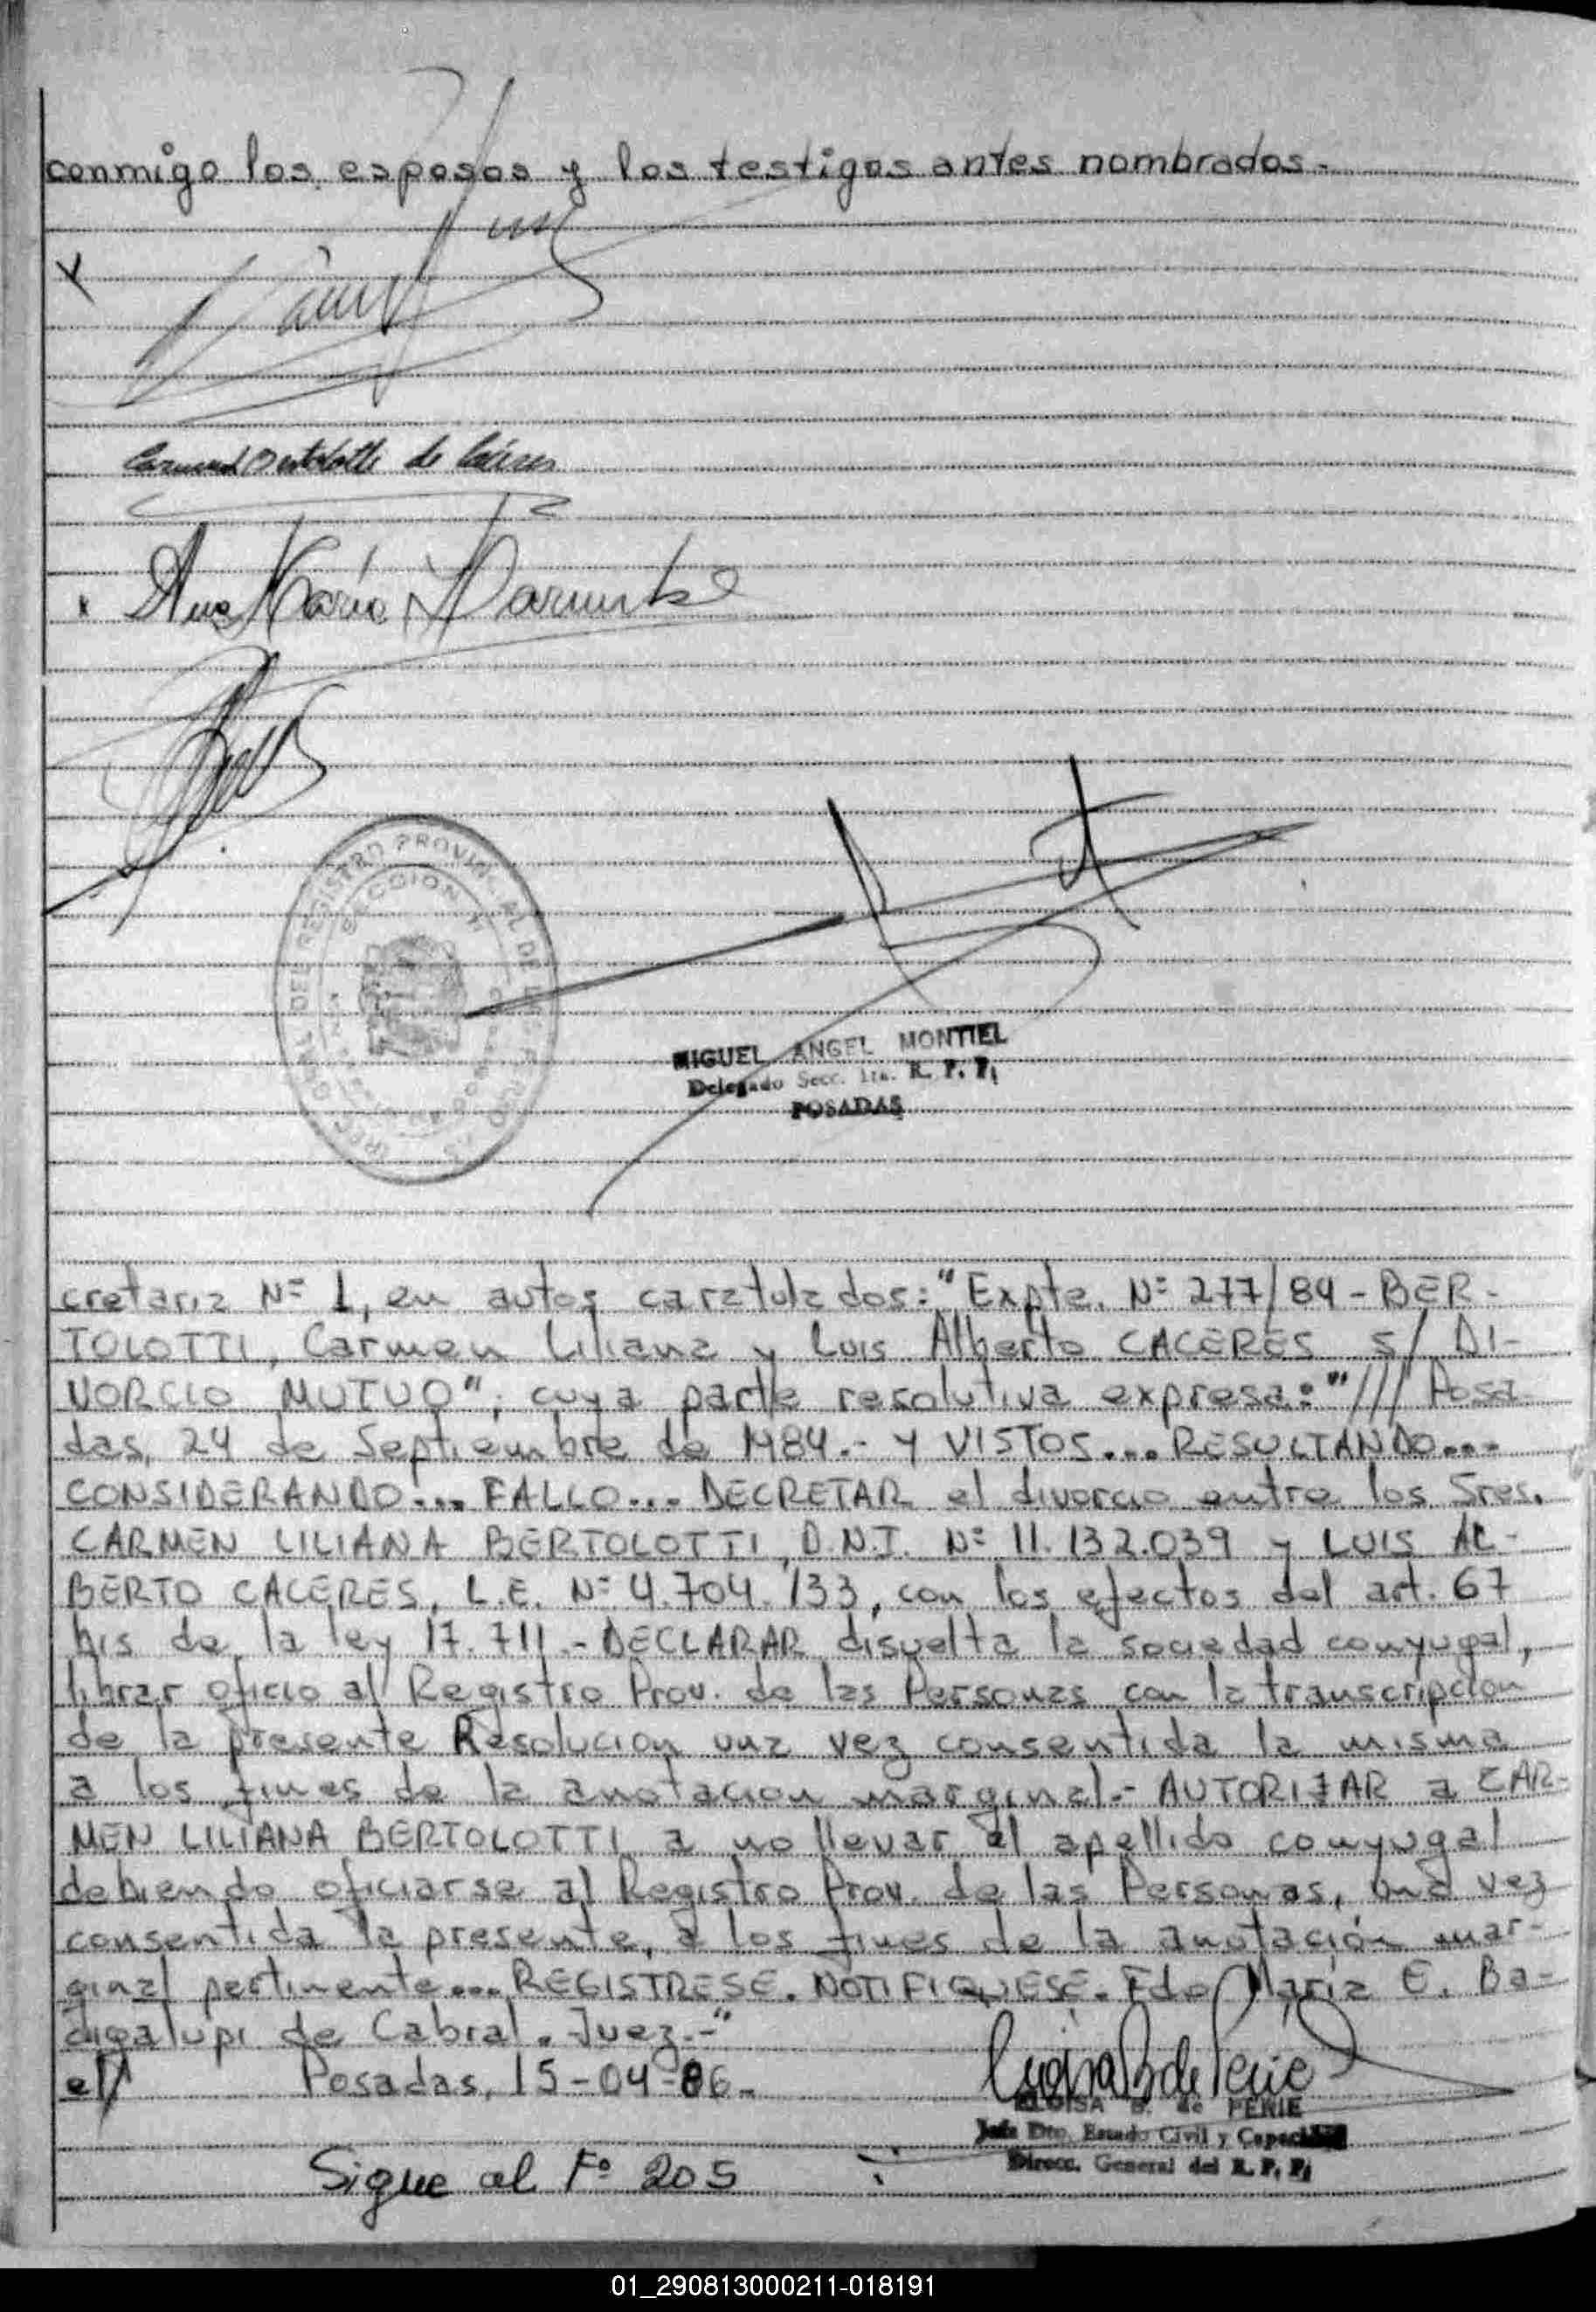 conmigo los esposos y los testigos antes nombrados.-
de Cáceres
Ana María
REGISTRO PROVINCIAL DE
SECCION
MIGUEL ANGEL MONTIEL
Delegado Secc. 1ra. R. P. P.
POSADAS
cretaria Nº 1, en autos caratulados: "Expte. Nº 277/84 - BER-
TOLOTTI, Carmen Liliana y Luis Alberto CACERES s/ DI-
VORCIO MUTUO"; cuya parte resolutiva expresa: "/// Posa
das, 24 de Septiembre de 1984.- Y VISTOS... RESULTANDO...
CONSIDERANDO... FALLO... DECRETAR el divorcio entre los Sres.
CARMEN LILIANA BERTOLOTTI, D.N.I. Nº 11.132.039 y LUIS AL-
BERTO CACERES, L.E. Nº 4.704.133, con los efectos del art. 67
bis de la ley 17.711.- DECLARAR disuelta la sociedad conyugal,
librar oficio al Registro Prov. de las Personas con la transcripcion
de la presente Resolucion una vez consentida la misma
a los fines de la anotacion marginal.- AUTORIZAR a CAR-
MEN LILIANA BERTOLOTTI a no llevar el apellido conyugal
debiendo oficiarse al Registro Prov. de las Personas, una vez
consentida la presente, a los fines de la anotación mar-
ginal pertinente... REGISTRESE. NOTIFIQUESE. Fdo María E. Ba-
digalupi de Cabral. Juez.-"
Posadas, 15-04-86.-
ELOISA B. de PERIE
Jefa Dto. Estado Civil y Capacidad
Direcc. General del R. P. P.
Sigue al Fº 205
01_290813000211-018191